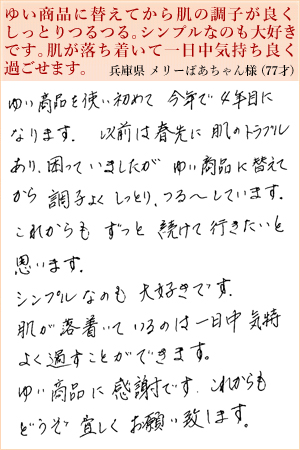 ゆい商品に替えてから肌の調子が良く
しっとりつるつる。シンプルなのも大好き
です。肌が落ち着いて一日中気持ち良く
過ごせます。 兵庫県 メリーばあちゃん様(77才)
ゆい商品を使い初めて 今年で4年目に
なります. 以前は春先に肌のトラブル
あり、困っていましたが ゆい商品に替えて
から 調子よくしっとり、つる〜しています.
これからも ずっと 続けて行きたいと
思います.
シンプルなのも 大好きです.
肌が落着いているのは一日中 気持
よく過すことができます。
ゆい商品に 感謝です. これからも
どうぞ 宜しく お願い致します。